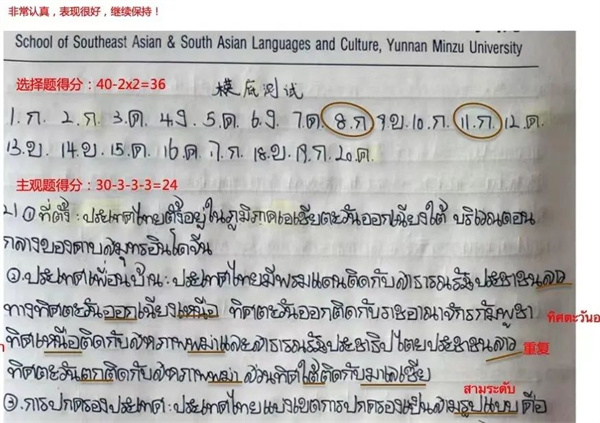 非常认真，表现很好，继续保持！
School of Southeast Asian & South Asian Languages and Culture, Yunnan Minzu University
选择题得分：40-2x2=36
摸底测试
1.ก. 2.ก. 3.ค. 4.ง. 5.ค. 6.ง. 7.ค. 8.ก 9.ข. 10.ก. 11.ก. 12.ค.
13.ข. 14.ข. 15.ค. 16.ค. 17.ก. 18.ข. 19.ก. 20.ค.
主观题得分：30-3-3-3=24
ที่ตั้ง : ประเทศไทยตั้งอยู่ในภูมิภาคเอเชียตะวันออกเฉียงใต้ บริเวณตอน
กลางของคาบสมุทรอินโดจีน
ประเทศเพื่อนบ้าน : ประเทศไทยมีพรมแดนติดกับสาธารณรัฐประชาชนลาว
ทางทิศตะวันออกเฉียงเหนือ ทิศตะวันออกติดกับราชอาณาจักรกัมพูชา
ทิศตะวันอ
ทิศเหนือติดกับสหภาพพม่าและสาธารณรัฐประชาธิปไตยประชาชนลาว 重复
ทิศตะวันตกติดกับสหภาพพม่า ส่วนทิศใต้ติดกับมาเลเซีย
สามระดับ
การปกครองประเทศ : ประเทศไทยแบ่งเขตการปกครองเป็นสามรูปแบบ คือ